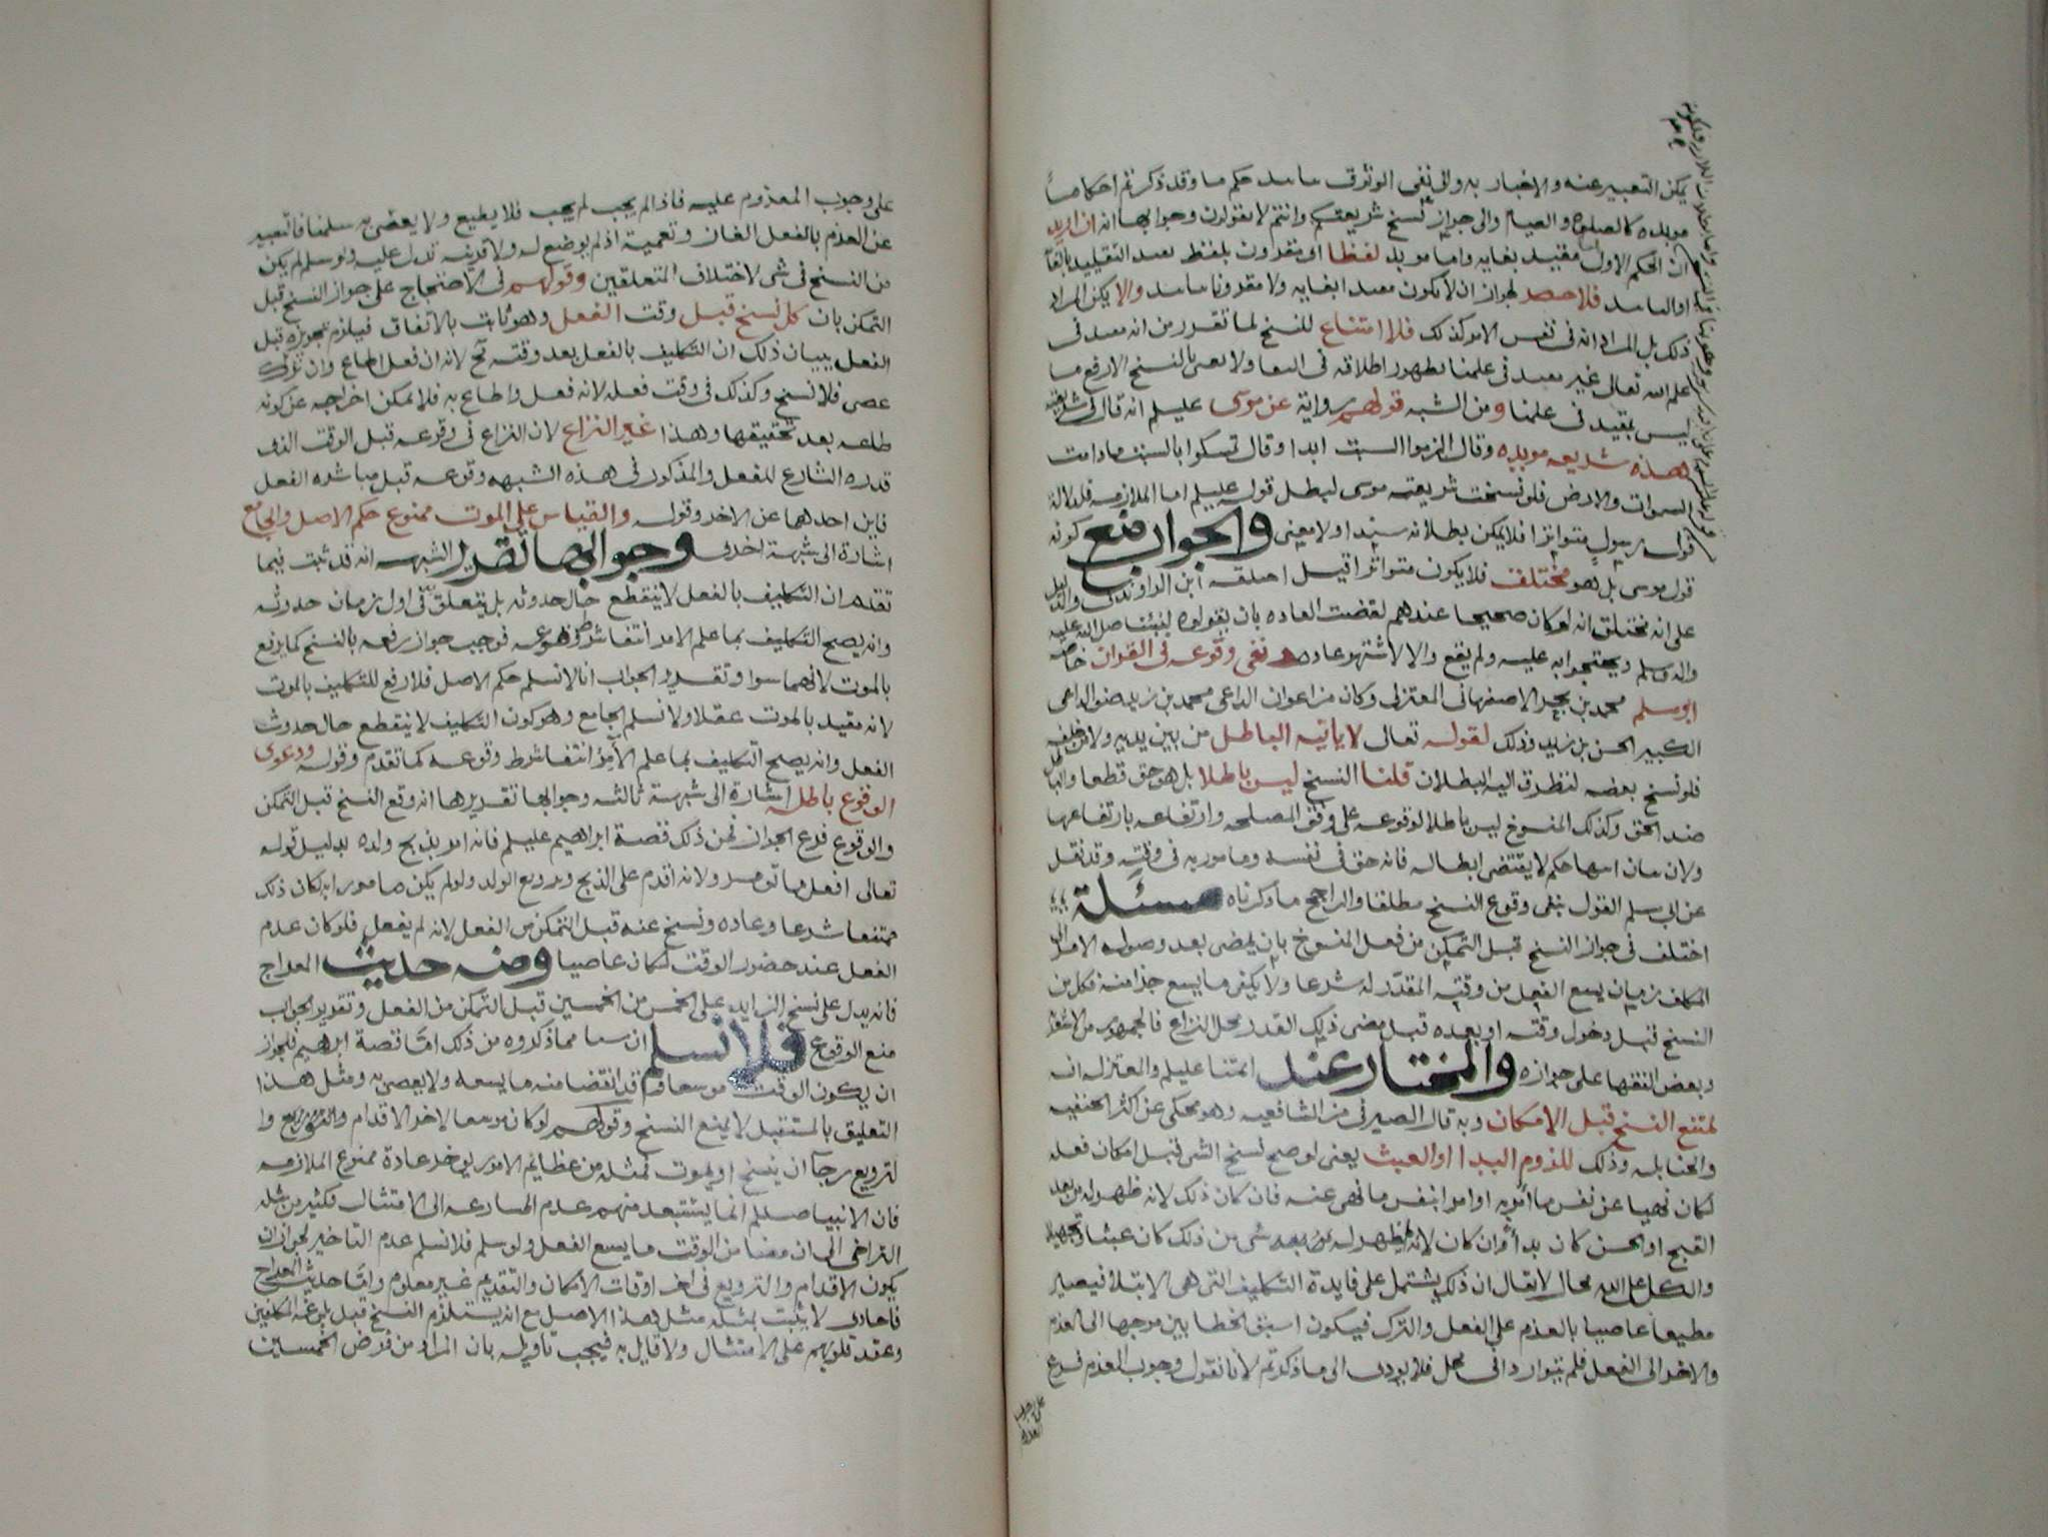 يمكن التعبير عنه والاخبار به والى نفى الوثوق حكم ما وقد ذكرتم احكاما
موبده كالصلوة والصيام والى جواز نسخ شريعتكم وانتم لا تقولون وجوابها انه ان اريد
ان الحكم الاول مقيد بغايه واما موبد لفظا او مقرون بلفظ التقييد
فلا حصر لجواز ان لا يكون بغايه ولا مقرونا والا يكن المراد
ذلك بل المراد انه فى نفس الامر كذلك فلا امتناع للنسخ لما تقرر من انه فى
علم الله تعالى غير فى علمنا اطلاقه فى ولا بالنسخ الا رفع ما
ليس بمقيد فى علمنا ومن الشبه قولهم رواية عن موسى عليلم انه قال
هذه شريعه موبده وقال الزموا السبت ابدا وقال تمسكوا بالسبت مادامت
السموات والارض فلو نسخت شريعته موسى لبطل قوله عليلم اما الملازمه فلدلالة
قوله رسول متواترا فلا يمكن بطلانه سندا ولا معنى والجواب منع كونه
قول موسى بل هو مختلف فلا يكون متواترا قيل ابن الراوندى والدليل
على انه مختلق انه لو كان صحيحا عندهم لقضت العاده بان يقولوه لنبينا صلى الله عليه
واله وسلم ويحتجوا به عليه ولم يقع والا لاشتهر عاده نفى وقوعه فى القران خاصه
ابو مسلم محمد بن بحر الاصفهانى المعتزلى وكان من اعوان الداعى محمد بن زيد صنو الداعى
الكبير الحسن بن زيد وذلك لقوله تعالى لا ياتيه الباطل من بين يديه ولا من خلفه
فلو نسخ بعضه لتطرق اليه البطلان قلنا النسخ ليس باطلا بل هو حق قطعا والباطل
ضد الحق وكذلك المنسوخ ليس باطلا لوقوعه على وفق المصلحه وارتفاعه بارتفاعها
ولان حكم لا يقتضى ابطاله فانه حق فى نفسه ومامور به فى وقته وقد نقل
عن ابى مسلم القول بنفى وقوع النسخ مطلقا والراجح ما ذكرناه مسئلة
اختلف فى جواز النسخ قبل التمكن من فعل المنسوخ بان يمضى بعد وصول الامر الى
المكلف زمان يسع الفعل من وقته المقدر له شرعا ولا يكفى ما يسع جزا منه فكل من
النسخ قبل دخول وقته او بعده قبل مضى ذلك القدر محل النزاع فالجمهور من
وبعض الفقها على جوازه والمختار عند ائمتنا عليلم والمعتزله انه
يمتنع النسخ قبل الامكان وبه قال الصيرفى من الشافعيه وهو محكى عن اكثر الحنفيه
والحنابله وذلك للزوم البدا او العبث يعنى لو صح نسخ الشى قبل امكان فعله
لكان نهيا عن نفس ما امر به او امرا بنفس ما نهى عنه فان كان ذلك لانه ظهر له من بعد
القبح او الحسن كان بدا وان كان لانه لم يظهر له من بعد شى من ذلك كان عبثا وتجهيلا
والكل على الله محال لا يقال ان ذلك يشتمل على فايدة التكليف التى هى الابتلا فيصير
مطيعا عاصيا بالعزم على الفعل والترك فيكون الخطابين موجها الى العزم
والاخر الى الفعل فلم يتواردا فى محل فلا يودى الى ما ذكرتم لانا نقول وجوب العزم فرع
على وجوب المعزوم عليه فاذا لم يجب لم يجب فلا يطيع ولا يعصى به سلمنا فالتعبير
عن العزم بالفعل الغاز وتعمية اذ لم يوضع له ولا قرينه تدل عليه ولو سلم لم يكن
من النسخ فى شى لاختلاف المتعلقين وقولهم فى الاحتجاج على جواز النسخ قبل
التمكن بان كل نسخ قبل وقت الفعل وهو ثابت بالاتفاق فيلزم تجويزه قبل
الفعل بيان ذلك ان التكليف بالفعل بعد وقته لانه ان فعل اطاع وان ترك
عصى فلا نسخ وكذلك فى وقت فعله لانه فعل واطاع به فلا يمكن اخراجه عن كونه
طاعه بعد تحقيقها وهذا غير النزاع لان النزاع فى وقوعه قبل الوقت الذى
قدره الشارع للفعل والمذكور فى هذه الشبهه وقوعه قبل مباشره الفعل
فاين احدهما عن الاخر وقوله والقياس على الموت ممنوع حكم الاصل والجامع
اشارة الى شبهة اخرى وجوابها تقرير الشبهه انه قد ثبت فيما
تقدم ان التكليف بالفعل لا ينقطع حال حدوثه بل يتعلق فى اول زمان حدوثه
وانه يصح التكليف بما علم الامر انتفا شرط وقوعه فوجب جواز رفعه بالنسخ كما يرفع
بالموت لانهما سوا وتقرير الجواب انا لا نسلم حكم الاصل فلا رفع للتكليف بالموت
لانه مقيد بالموت عقلا ولا نسلم الجامع وهو كون التكليف لا ينقطع حال حدوث
الفعل وانه يصح التكليف بما علم الآمر انتفا شرط وقوعه كما تقدم وقوله ودعوى
الوقوع باطله اشارة الى شبهة ثالثه وجوابها تقريرها انه وقع النسخ قبل التمكن
والوقوع فرع الجواز فمن ذلك قصة ابراهيم عليلم فانه امر بذبح ولده بدليل قوله
تعالى افعل ما تومر ولانه اقدم على الذبح وترويع الولد ولو لم يكن مامورا به لكان ذلك
ممتنعا شرعا وعاده ونسخ عنه قبل التمكن من الفعل لانه لم يفعل فلو كان عدم
الفعل عند حضور الوقت لكان عاصيا ومنه حديث المعراج
فانه يدل على نسخ الزايد على الخمس من الخمسين قبل التمكن من الفعل وتقرير الجواب
منع الوقوع فلا نسلم ان مما ذكروه من ذلك اما قصة ابرهيم فلجواز
ان يكون الوقت موسعا قد انقضا منه ما يسعه ولا يعصى به ومثل هذا
التعليق بالمستقبل لا يمنع النسخ وقولكم لو كان موسعا لاخر الاقدام والترويع
لترويع رجا ان ينسخ او يموت فمثله من عظايم الامور يوخر عادة ممنوع الملازمه
فان الانبيا صللم انما يستبعد منهم عدم المسارعه الى الامتثال فكثير من مثله
التراخى الى ان مضا من الوقت ما يسع الفعل ولو سلم فلا نسلم عدم التاخير لجواز ان
يكون الاقدام والترويع فى اخر اوقات الامكان والتقديم غير معلوم واما حديث المعراج
فاحادى لا يثبت بمثله مثل هذا الاصل مع انه يستلزم النسخ قبل بلوغه المكلفين
وعقد قلوبهم على الامتثال ولا قايل به فيجب تاويله بان المراد من فرض الخمسين